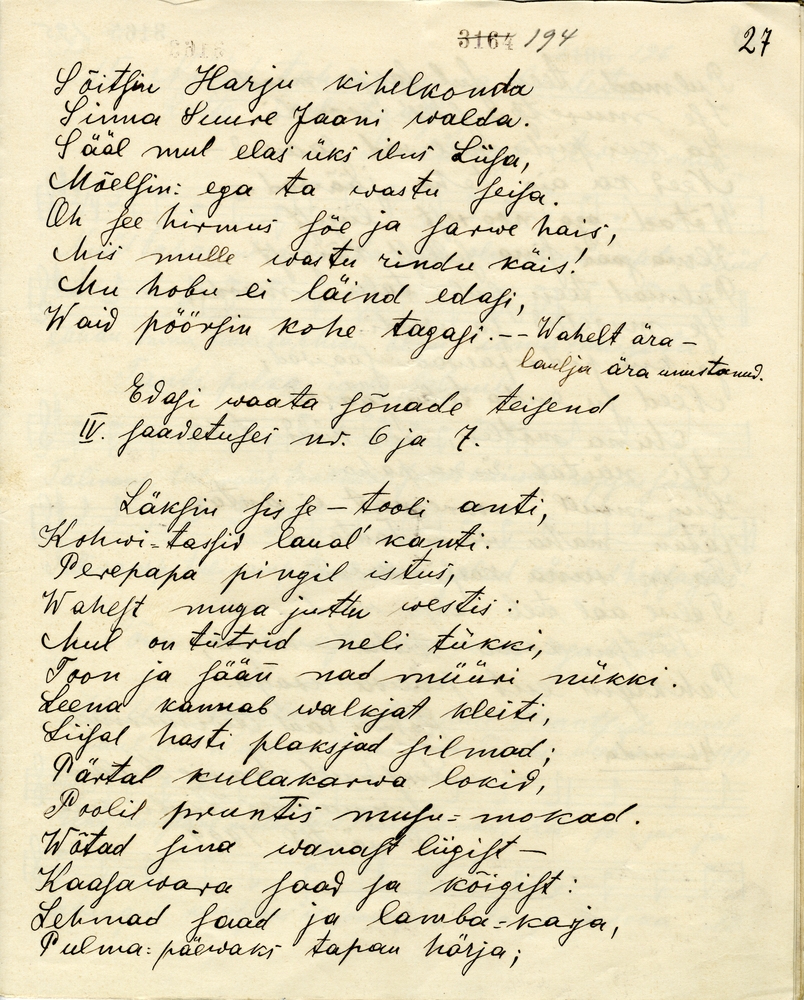 3164 194
27
Sõitsin Harju kihelkonda
Sinna Suure Jaani walda.
Sääl mul elas üks ilus Liisa,
Mõelsin: ega ta wastu seisa.
Oh see hirmus söe ja sarwe hais,
Mis mulle wastu rindu käis!
Mu hobu ei läind edasi,
Waid pöörsin kohe tagasi. — Wahelt ära —
laulja ära unustanud.
Edasi waata sõnade teisend
IV. saadetuses nr. 6 ja 7.
Läksin sisse — tooli anti,
Kohwi-tassid laual' kanti.
Perepapa pingil istus,
Wahest muga juttu westis:
Mul on tütrid neli tükki,
Toon ja sään̄ nad müüri nükki.
Leena kannab walkjat kleiti,
Liisal hasti plaksjad silmad;
Pärtal kullakarwa lokid,
Poolil pruntis musu-mokad.
Wõtad sina wanast liigist —
Kaasawara saad sa kõigist:
Lehmad saad ja lamba-karja,
Pulma-päewaks tapan härja;